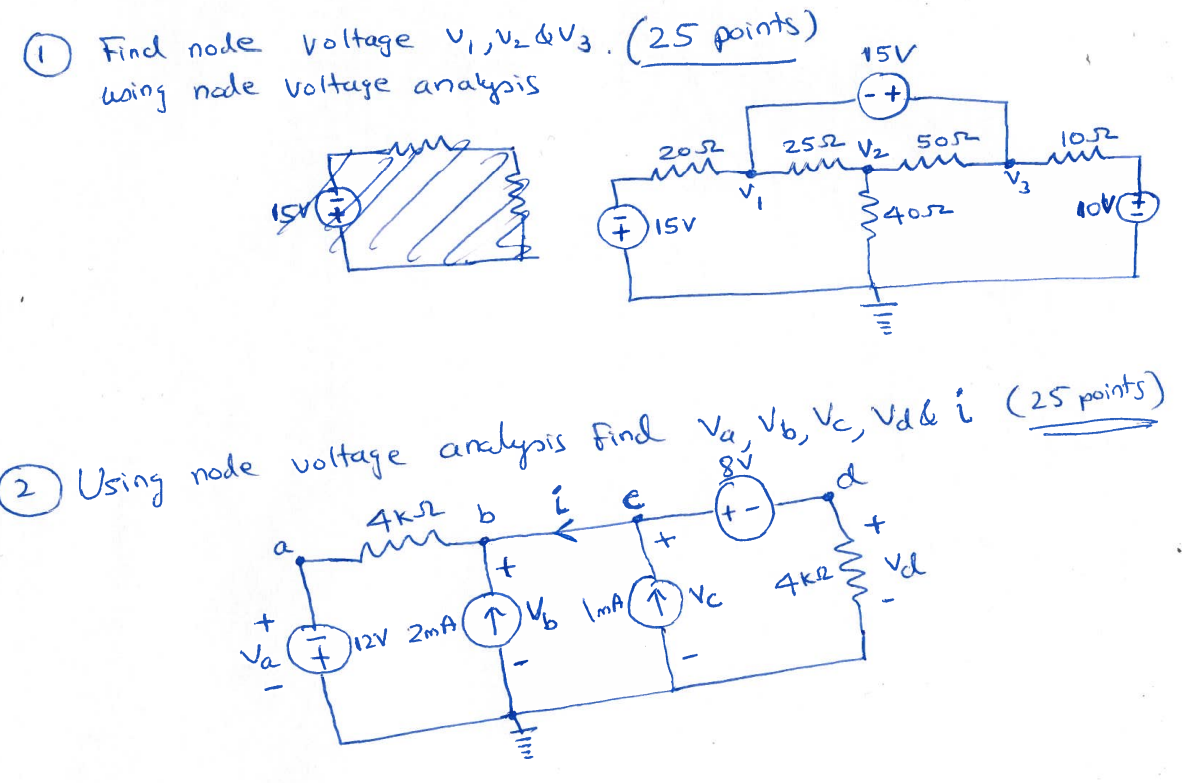 1 Find node voltage V1, V2 & V3. (25 points)
using node voltage analysis
15V
15V
20Ω
25Ω
V2
50Ω
10Ω
V1
V3
15V
40Ω
10V
2 Using node voltage analysis find Va, Vb, Vc, Vd & i (25 points)
8V
4KΩ
b
i
c
d
a
+
Va
-
12V
2mA
+
Vb
-
1mA
+
Vc
-
4KΩ
+
Vd
-